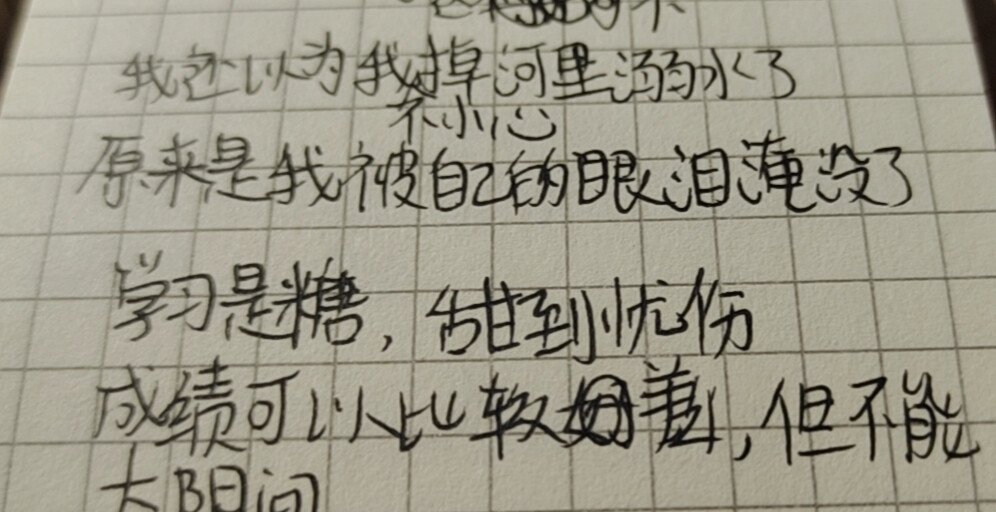 我还以为我掉河里溺水了
不小心
原来是我被自己的眼泪淹没了
学习是糖，甜到忧伤
成绩可以比较差，但不能
太阳问